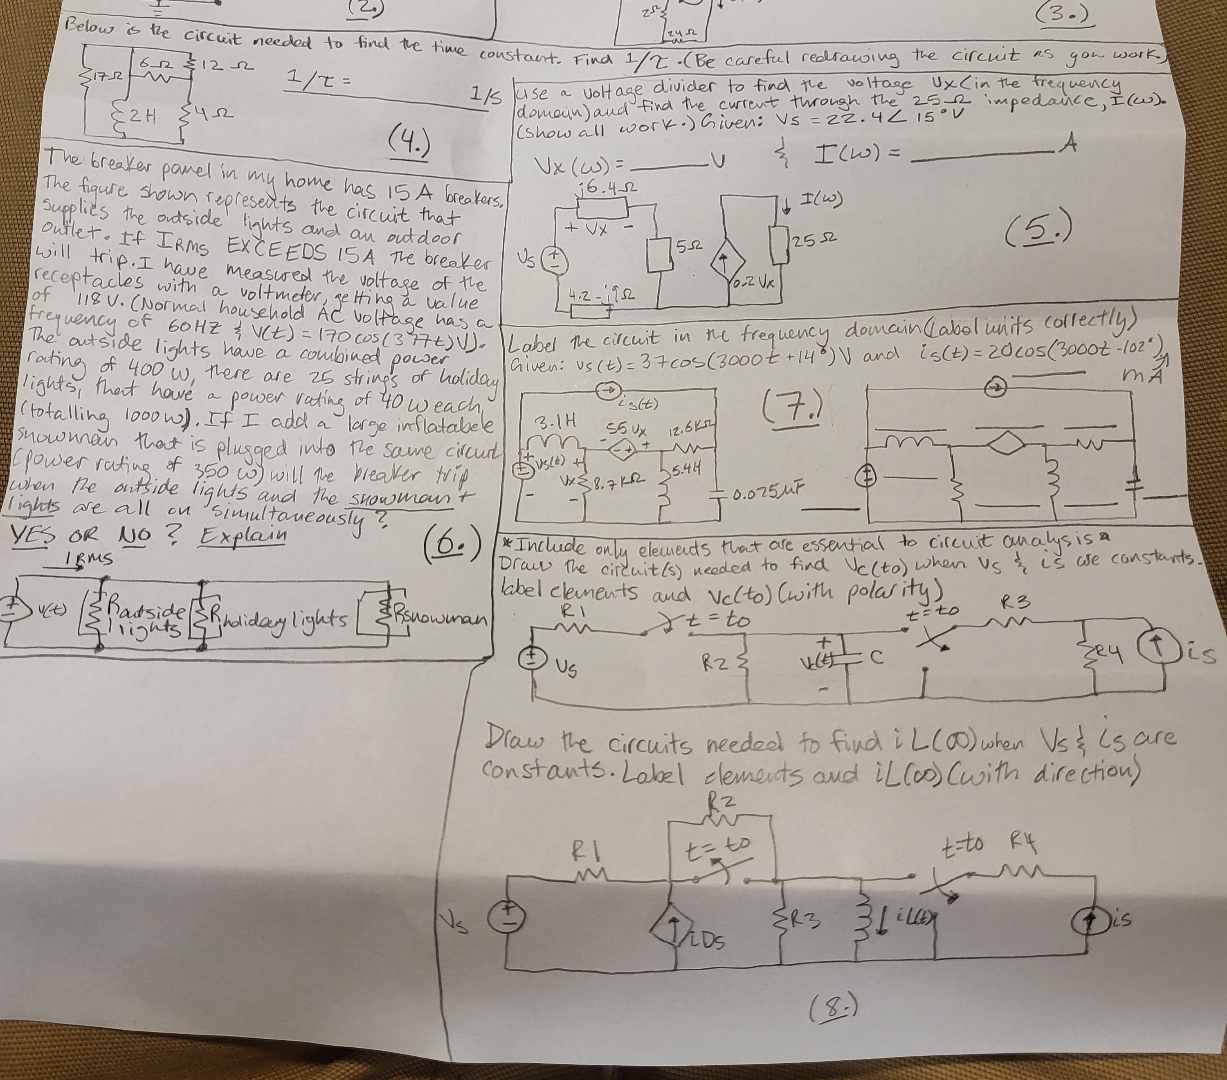 (2.)
2Ω
24Ω
(3.)
Below is the circuit needed to find the time constant. Find 1/τ. (Be careful redrawing the circuit as you work.)
17Ω
6Ω
12 Ω
2H
4Ω
1/τ = ________ 1/s
(4.)
use a voltage divider to find the voltage Vx (in the frequency
domain) and find the current through the 25Ω impedance, I(ω).
(Show all work.) Given: Vs = 22.4∠15°V
Vx(ω) = ______ V & I(ω) = ________ A
j6.4Ω
+ Vx -
Vs
5Ω
4.2-j9Ω
0.2 Vx
I(ω)
25Ω
(5.)
The breaker panel in my home has 15 A breakers.
The figure shown represents the circuit that
supplies the outside lights and an outdoor
outlet. If IRMS EXCEEDS 15A the breaker
will trip. I have measured the voltage of the
receptacles with a voltmeter, getting a value
of 118 V. (Normal household AC voltage has a
frequency of 60HZ & V(t) = 170cos(377t)V).
The outside lights have a combined power
rating of 400 W, there are 25 strings of holiday
lights, that have a power rating of 40 W each
(totalling 1000 W). If I add a large inflatabele
snowman that is plugged into the same circuit
(power rating of 350 W) will the breaker trip
when the outside lights and the snowman +
lights are all on simultaneously?
YES OR NO? Explain
(6.)
IRMS
v(t)
Routside lights
Rholiday lights
Rsnowman
Label the circuit in the frequency domain (Label units correctly)
Given: vs(t) = 37cos(3000t+14°)V and is(t) = 20cos(3000t-102°)
mA
is(t)
3.1H
55 Vx
- +
12.6KΩ
vs(t)
+
Vx
-
8.7KΩ
5.4H
0.025μF
(7.)
*Include only elements that are essential to circuit analysis*
Draw the circuit(s) needed to find Vc(to) when Vs & is are constants.
label elements and Vc(to) (with polarity)
R1
t = to
t = to
R3
Vs
R2
+
Vc(t)
-
C
R4
is
Draw the circuits needed to find iL(∞) when Vs & is are
constants. Label elements and iL(∞) (with direction)
R2
R1
t = to
t=to
R4
Vs
iDs
R3
iL(t)
is
(8.)